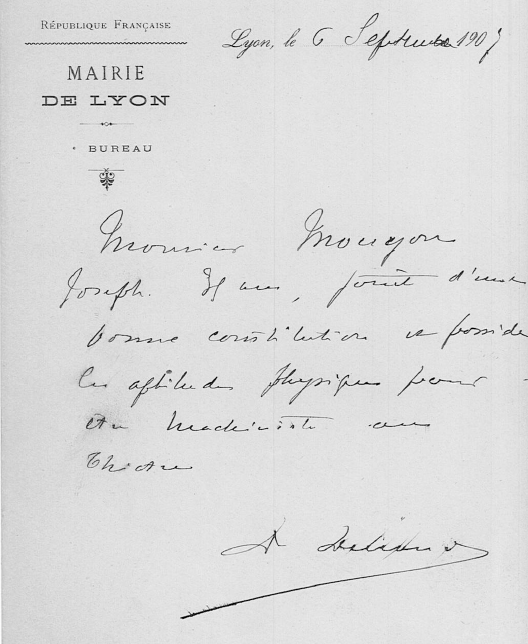 RÉPUBLIQUE FRANÇAISE
MAIRIE
DE LYON
BUREAU
Lyon, le 6 Septembre 1907
Monsieur
Joseph. ans, jouit d'une
bonne constitution et possède
les aptitudes physiques pour
être machiniste au
Théâtre
Dr